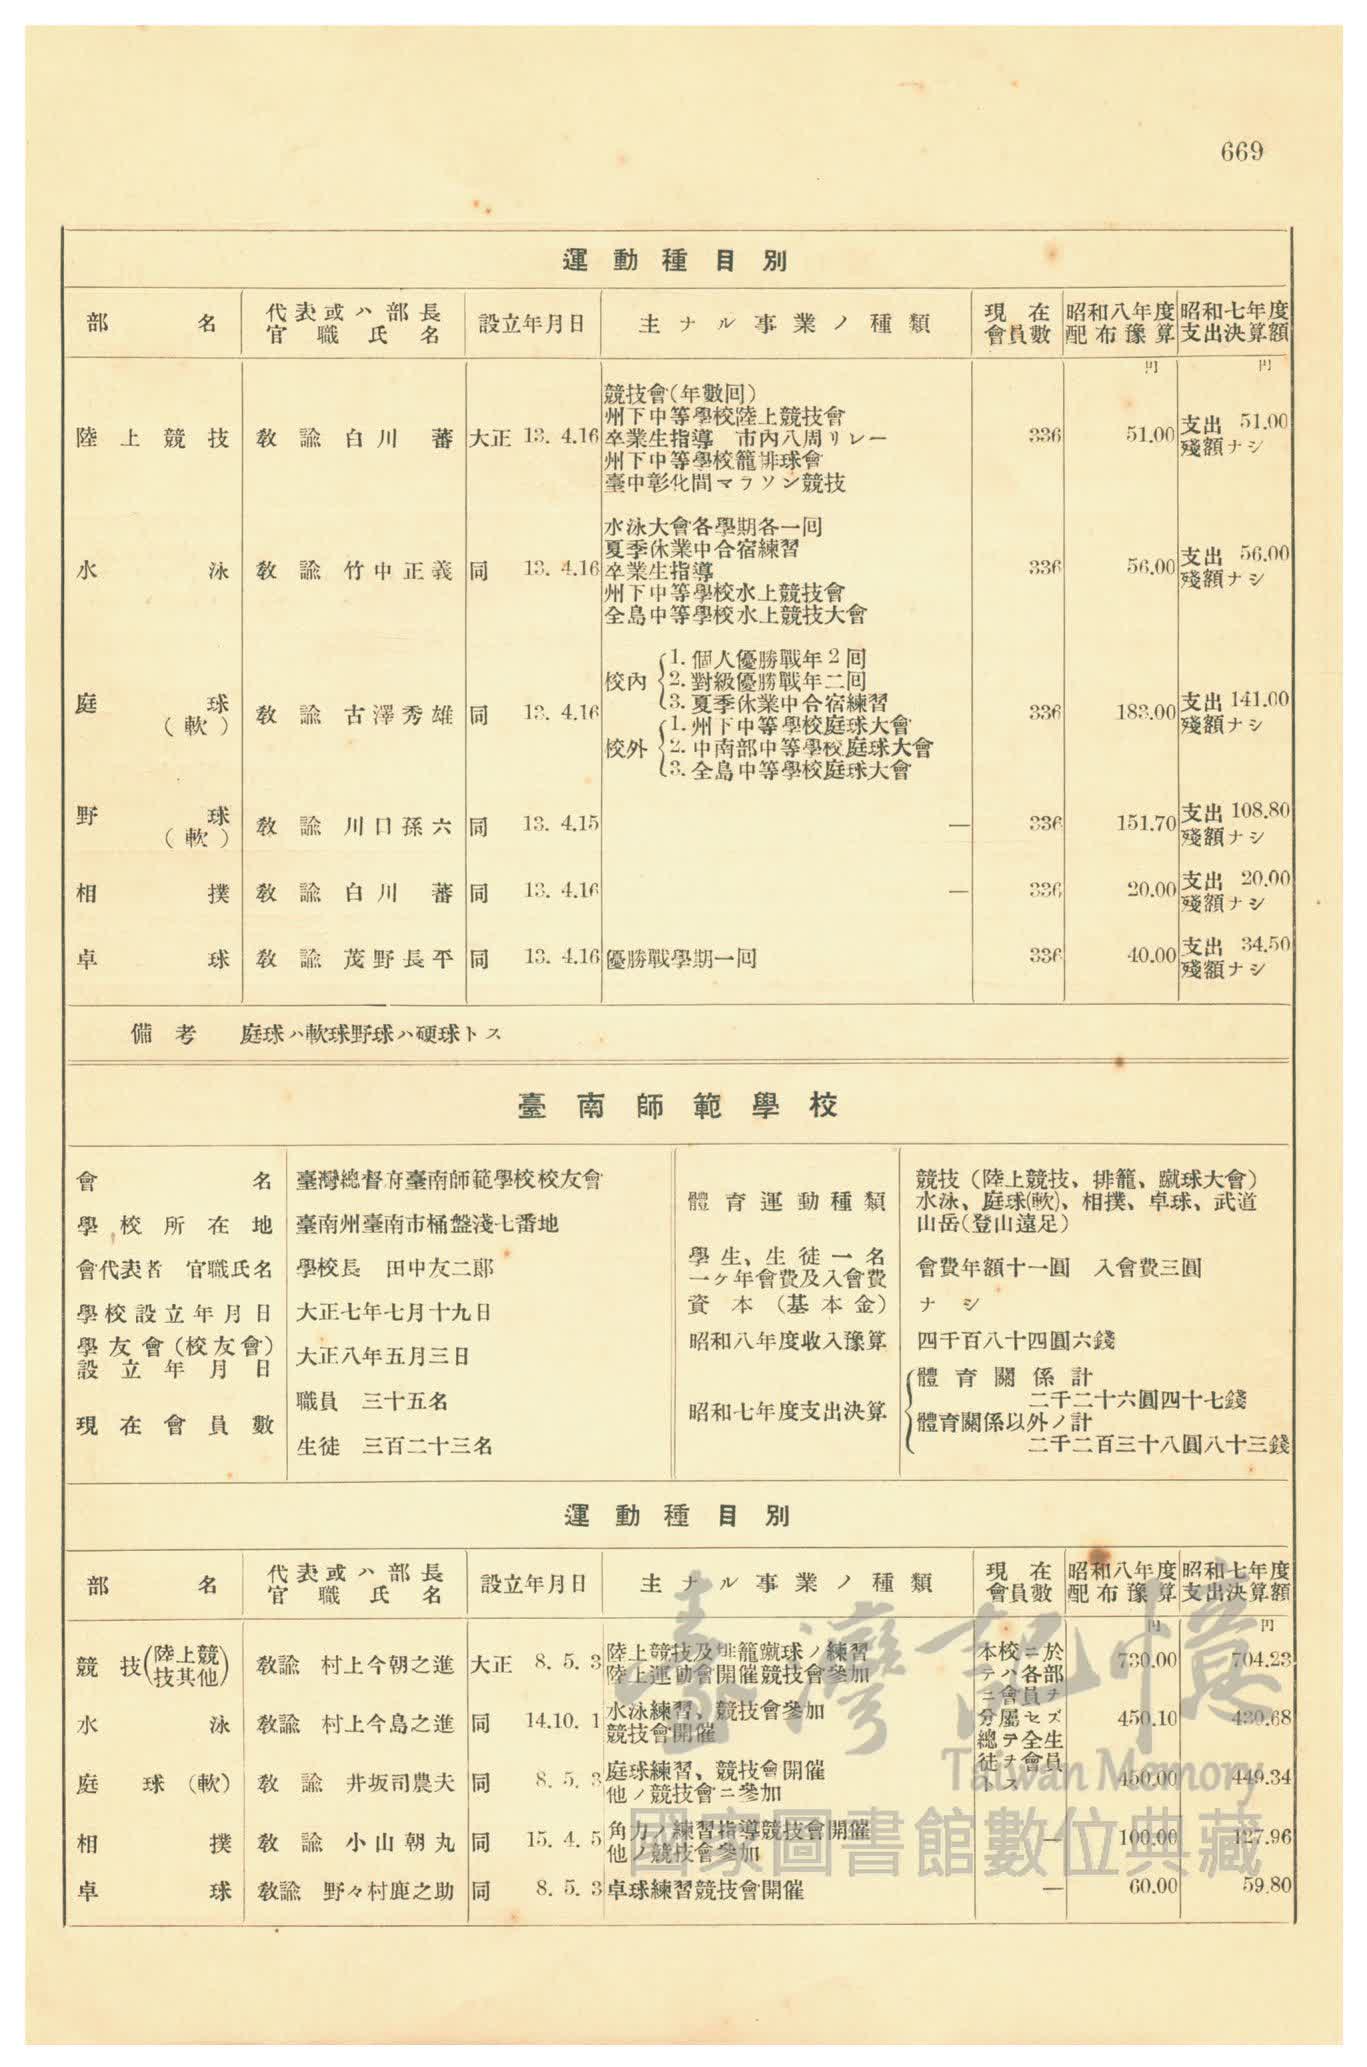 669
運動種目別
部名 代表或ハ部長官職氏名 設立年月日 主ナル事業ノ種類 現在會員數 昭和八年度配布豫算 昭和七年度支出決算額
円 円
陸上競技 教諭 白川蕃 大正 13. 4.16 336 51.00 支出 51.00 殘額ナシ
競技會(年數回)
州下中等學校陸上競技會
卒業生指導 市內八周リレー
州下中等學校籠排球會
臺中彰化間マラソン競技
水泳 教諭 竹中正義 同 13. 4.16 336 56.00 支出 56.00 殘額ナシ
水泳大會各學期各一回
夏季休業中合宿練習
卒業生指導
州下中等學校水上競技會
全島中等學校水上競技大會
庭球(軟) 教諭 古澤秀雄 同 13. 4.16 336 183.00 支出 141.00 殘額ナシ
校內
1. 個人優勝戰年2回
2. 對級優勝戰年二回
3. 夏季休業中合宿練習
校外
1. 州下中等學校庭球大會
2. 中南部中等學校庭球大會
3. 全島中等學校庭球大會
野球(軟) 教諭 川口孫六 同 13. 4.15 — 336 151.70 支出 108.80 殘額ナシ
相撲 教諭 白川蕃 同 13. 4.16 — 336 20.00 支出 20.00 殘額ナシ
卓球 教諭 茂野長平 同 13. 4.16 優勝戰學期一回 336 40.00 支出 34.50 殘額ナシ
備考 庭球ハ軟球野球ハ硬球トス
臺南師範學校
會名 臺灣總督府臺南師範學校校友會
學校所在地 臺南州臺南市桶盤淺七番地
會代表者 官職氏名 學校長 田中友二郎
學校設立年月日 大正七年七月十九日
學友會(校友會)設立年月日 大正八年五月三日
現在會員數 職員 三十五名
生徒 三百二十三名
體育運動種類 競技(陸上競技、排籠、蹴球大會)
水泳、庭球(軟)、相撲、卓球、武道
山岳(登山遠足)
學生、生徒一名一ケ年會費及入會費 會費年額十一圓 入會費三圓
資本(基本金) ナシ
昭和八年度收入豫算 四千百八十四圓六錢
昭和七年度支出決算 體育關係計
二千二十六圓四十七錢
體育關係以外ノ計
二千二百三十八圓八十三錢
運動種目別
部名 代表或ハ部長官職氏名 設立年月日 主ナル事業ノ種類 現在會員數 昭和八年度配布豫算 昭和七年度支出決算額
円 円
競技(陸上競技其他) 教諭 村上今朝之進 大正 8. 5. 3 730.00 704.23
陸上競技及排籠蹴球ノ練習
陸上運動會開催競技會參加
水泳 教諭 村上今島之進 同 14.10. 1 450.10 439.68
水泳練習、競技會參加
競技會開催
庭球(軟) 教諭 井坂司農夫 同 8. 5. 3 450.00 449.34
庭球練習、競技會開催
他ノ競技會ニ參加
本校ニ於
テハ各部
ニ會員ヲ
分屬セズ
總テ全生
徒ヲ會員
トス
相撲 教諭 小山朝丸 同 15. 4. 5 — 100.00 127.96
角力ノ練習指導競技會開催
他ノ競技會參加
卓球 教諭 野々村鹿之助 同 8. 5. 3 卓球練習競技會開催 — 60.00 59.80
臺灣記憶
Taiwan Memory
國家圖書館數位典藏